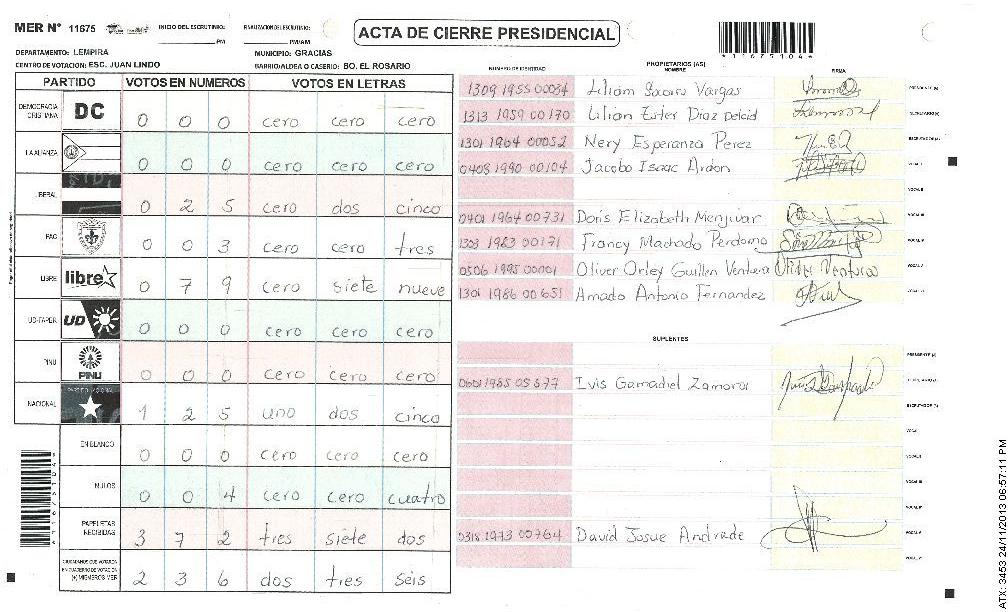 MER N° 11675 INICIO DEL ESCRUTINIO: PM FINALIZACION DEL ESCRUTINIO: PM/AM ACTA DE CIERRE PRESIDENCIAL
*11675104*
DEPARTAMENTO: LEMPIRA MUNICIPIO: GRACIAS
CENTRO DE VOTACION: ESC. JUAN LINDO BARRIO/ALDEA O CASERIO: BO. EL ROSARIO
PARTIDO VOTOS EN NUMEROS VOTOS EN LETRAS
DEMOCRACIA CRISTIANA DC 0 0 0 cero cero cero
LA ALIANZA 0 0 0 cero cero cero
LIBERAL 0 2 5 cero dos cinco
PAC 0 0 3 cero cero tres
LIBRE libre 0 7 9 cero siete nueve
UD-FAPER UD 0 0 0 cero cero cero
PINU PINU 0 0 0 cero cero cero
NACIONAL 1 2 5 uno dos cinco
EN BLANCO 0 0 0 cero cero cero
NULOS 0 0 4 cero cero cuatro
PAPELETAS RECIBIDAS 3 7 2 tres siete dos
CIUDADANOS QUE VOTARON EN CUADERNO DE VOTACION (+) MIEMBROS MER 2 3 6 dos tres seis
NUMERO DE IDENTIDAD PROPIETARIOS (AS) NOMBRE FIRMA
1309 1955 00084 Lilian Vargas
1313 1959 00170 Lilian Ester Diaz Delcid
1301 1964 00052 Nery Esperanza Perez
0408 1990 00104 Jacobo Isaac Ardon
VOCAL II
0401 1964 00731 Doris Elizabeth Menjivar VOCAL III
1303 1983 00171 Francy Machado Perdomo VOCAL IV
0506 1995 00001 Oliver Orley Guillen Ventura VOCAL V
1301 1986 00651 Amado Antonio Fernandez
SUPLENTES
0601 1985 05877 Ivis Gamadiel Zamora
VOCAL I
VOCAL II
VOCAL III
VOCAL IV
0318 1973 00764 David Josue Andrade VOCAL V
ATX: 3453 24/11/2013 06:57:11 PM